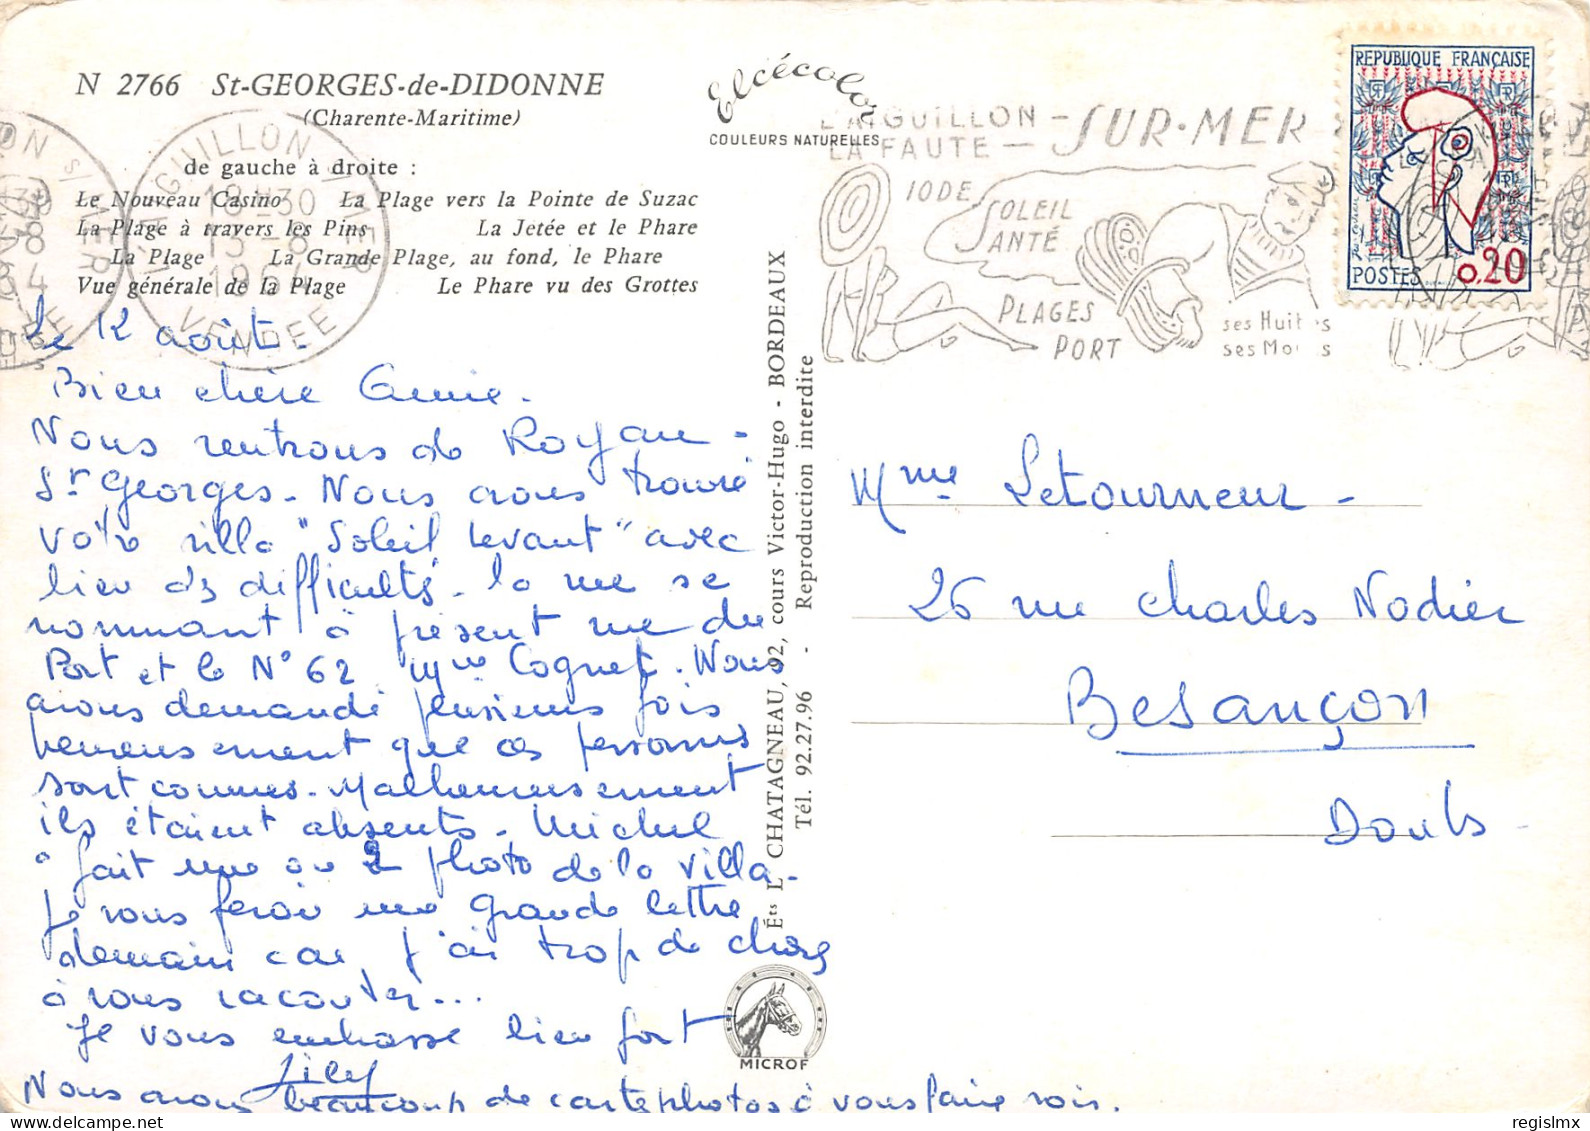 N 2766 St-GEORGES-de-DIDONNE
(Charente-Maritime)
de gauche à droite :
Le Nouveau Casino La Plage vers la Pointe de Suzac
La Plage à travers les Pins La Jetée et le Phare
La Plage La Grande Plage, au fond, le Phare
Vue générale de la Plage Le Phare vu des Grottes
Elcécolor
COULEURS NATURELLES
L'AIGUILLON S/ MER
18H30
13-8
1964
VENDEE
L'AIGUILLON - SUR-MER
LA FAUTE -
IODE
SOLEIL
SANTÉ
PLAGES
PORT
ses Huitres
ses Moules
REPUBLIQUE FRANÇAISE
POSTES 0,20
Le 12 août
Bien chère Annie.
Nous rentrons de Royan -
St Georges. Nous avons trouvé
votre villa "Soleil Levant" avec
bien des difficultés. la rue se
nommant à présent rue du
Port et le N° 62 Mme Cognet. Nous
avons demandé plusieurs fois
heureusement que ces personnes
sont connues. Malheureusement
ils étaient absents. Michel
a fait une ou 2 photo de la villa.
Je vous ferai une grande lettre
demain car j'ai trop de choses
à vous raconter...
Je vous embrasse bien fort
Lily
Nous avons beaucoup de cartes photos à vous faire voir.
Éts L. CHATAGNEAU, 92, cours Victor-Hugo - BORDEAUX
Tél. 92.27.96 - Reproduction interdite
MICROF
Mme Letourneur -
26 rue Charles Nodier
Besançon
Doubs -
regislmx